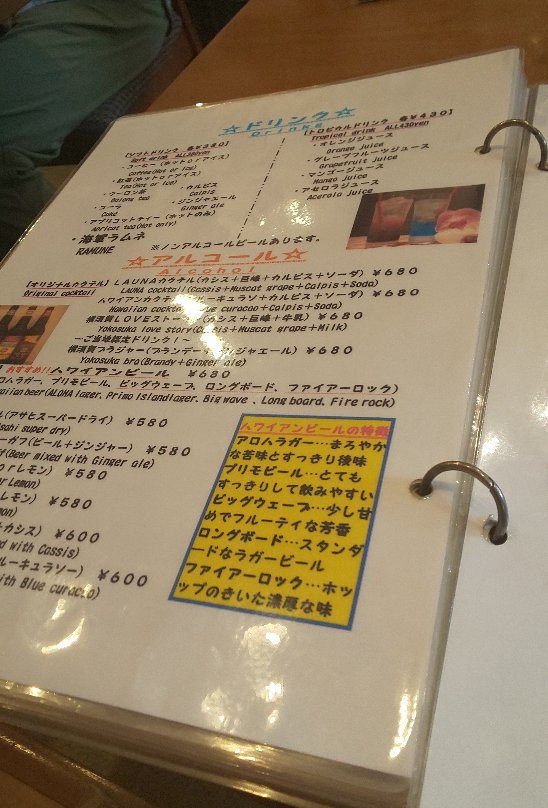 ☆ドリンク☆
Drinks
【ソフトドリンク 各￥340】
Soft drink ALL340yen
・コーヒー(ホットorアイス)
Coffee(Hot or Ice)
・紅茶(ホットorアイス)
Tea(Hot or Ice)
・ウーロン茶
Oolong tea
・コーラ
Coke
・アプリコットティー(ホットのみ)
Apricot tea(Hot only)
・海軍ラムネ
RAMUNE
・カルピス
Calpis
・ジンジャエール
Ginger ale
【トロピカルドリンク 各￥430】
Tropical drink ALL430yen
・オレンジジュース
Orange juice
・グレープフルーツジュース
Grapefruit juice
・マンゴージュース
Mango juice
・アセロラジュース
Acerola juice
※ノンアルコールビールあります。
☆アルコール☆
Alcohol
【オリジナルカクテル】
Original cocktail
LAUNAカクテル(カシス+巨峰+カルピス+ソーダ) ￥680
LAUNA cocktail(Cassis+Muscat grape+Calpis+Soda)
ハワイアンカクテル(ブルーキュラソ+カルピス+ソーダ) ￥680
Hawaiian cocktail(Blue curacao+Calpis+Soda)
横須賀LOVEストーリー(カシス+巨峰+牛乳) ￥680
Yokosuka love story(Cassis+Muscat grape+Milk)
～ご当地認定ドリンク！～
横須賀ブラジャー(ブランデー+ジンジャエール) ￥680
Yokosuka bra(Brandy+Ginger ale)
おすすめ!!
ハワイアンビール ￥680
アロハラガー、プリモビール、ビッグウェーブ、ロングボード、ファイアーロック)
waiian beer(ALOHA lager, Primo Island lager, Big wave, Long board, Fire rock)
(アサヒスーパードライ) ￥580
sahi super dry)
ーガフ(ビール+ジンジャー) ￥580
f(Beer mixed with Ginger ale)
orレモン) ￥580
r Lemon)
レモン) ￥580
mon)
+カシス) ￥600
ed with Cassis)
ルーキュラソー) ￥600
with Blue curacao)
ハワイアンビールの特徴
アロハラガー…まろやか
な苦味とすっきり後味
プリモビール…とても
すっきりして飲みやすい
ビッグウェーブ…少し甘
めでフルーティな芳香
ロングボード…スタンダ
ードなラガービール
ファイアーロック…ホッ
ップのきいた濃厚な味